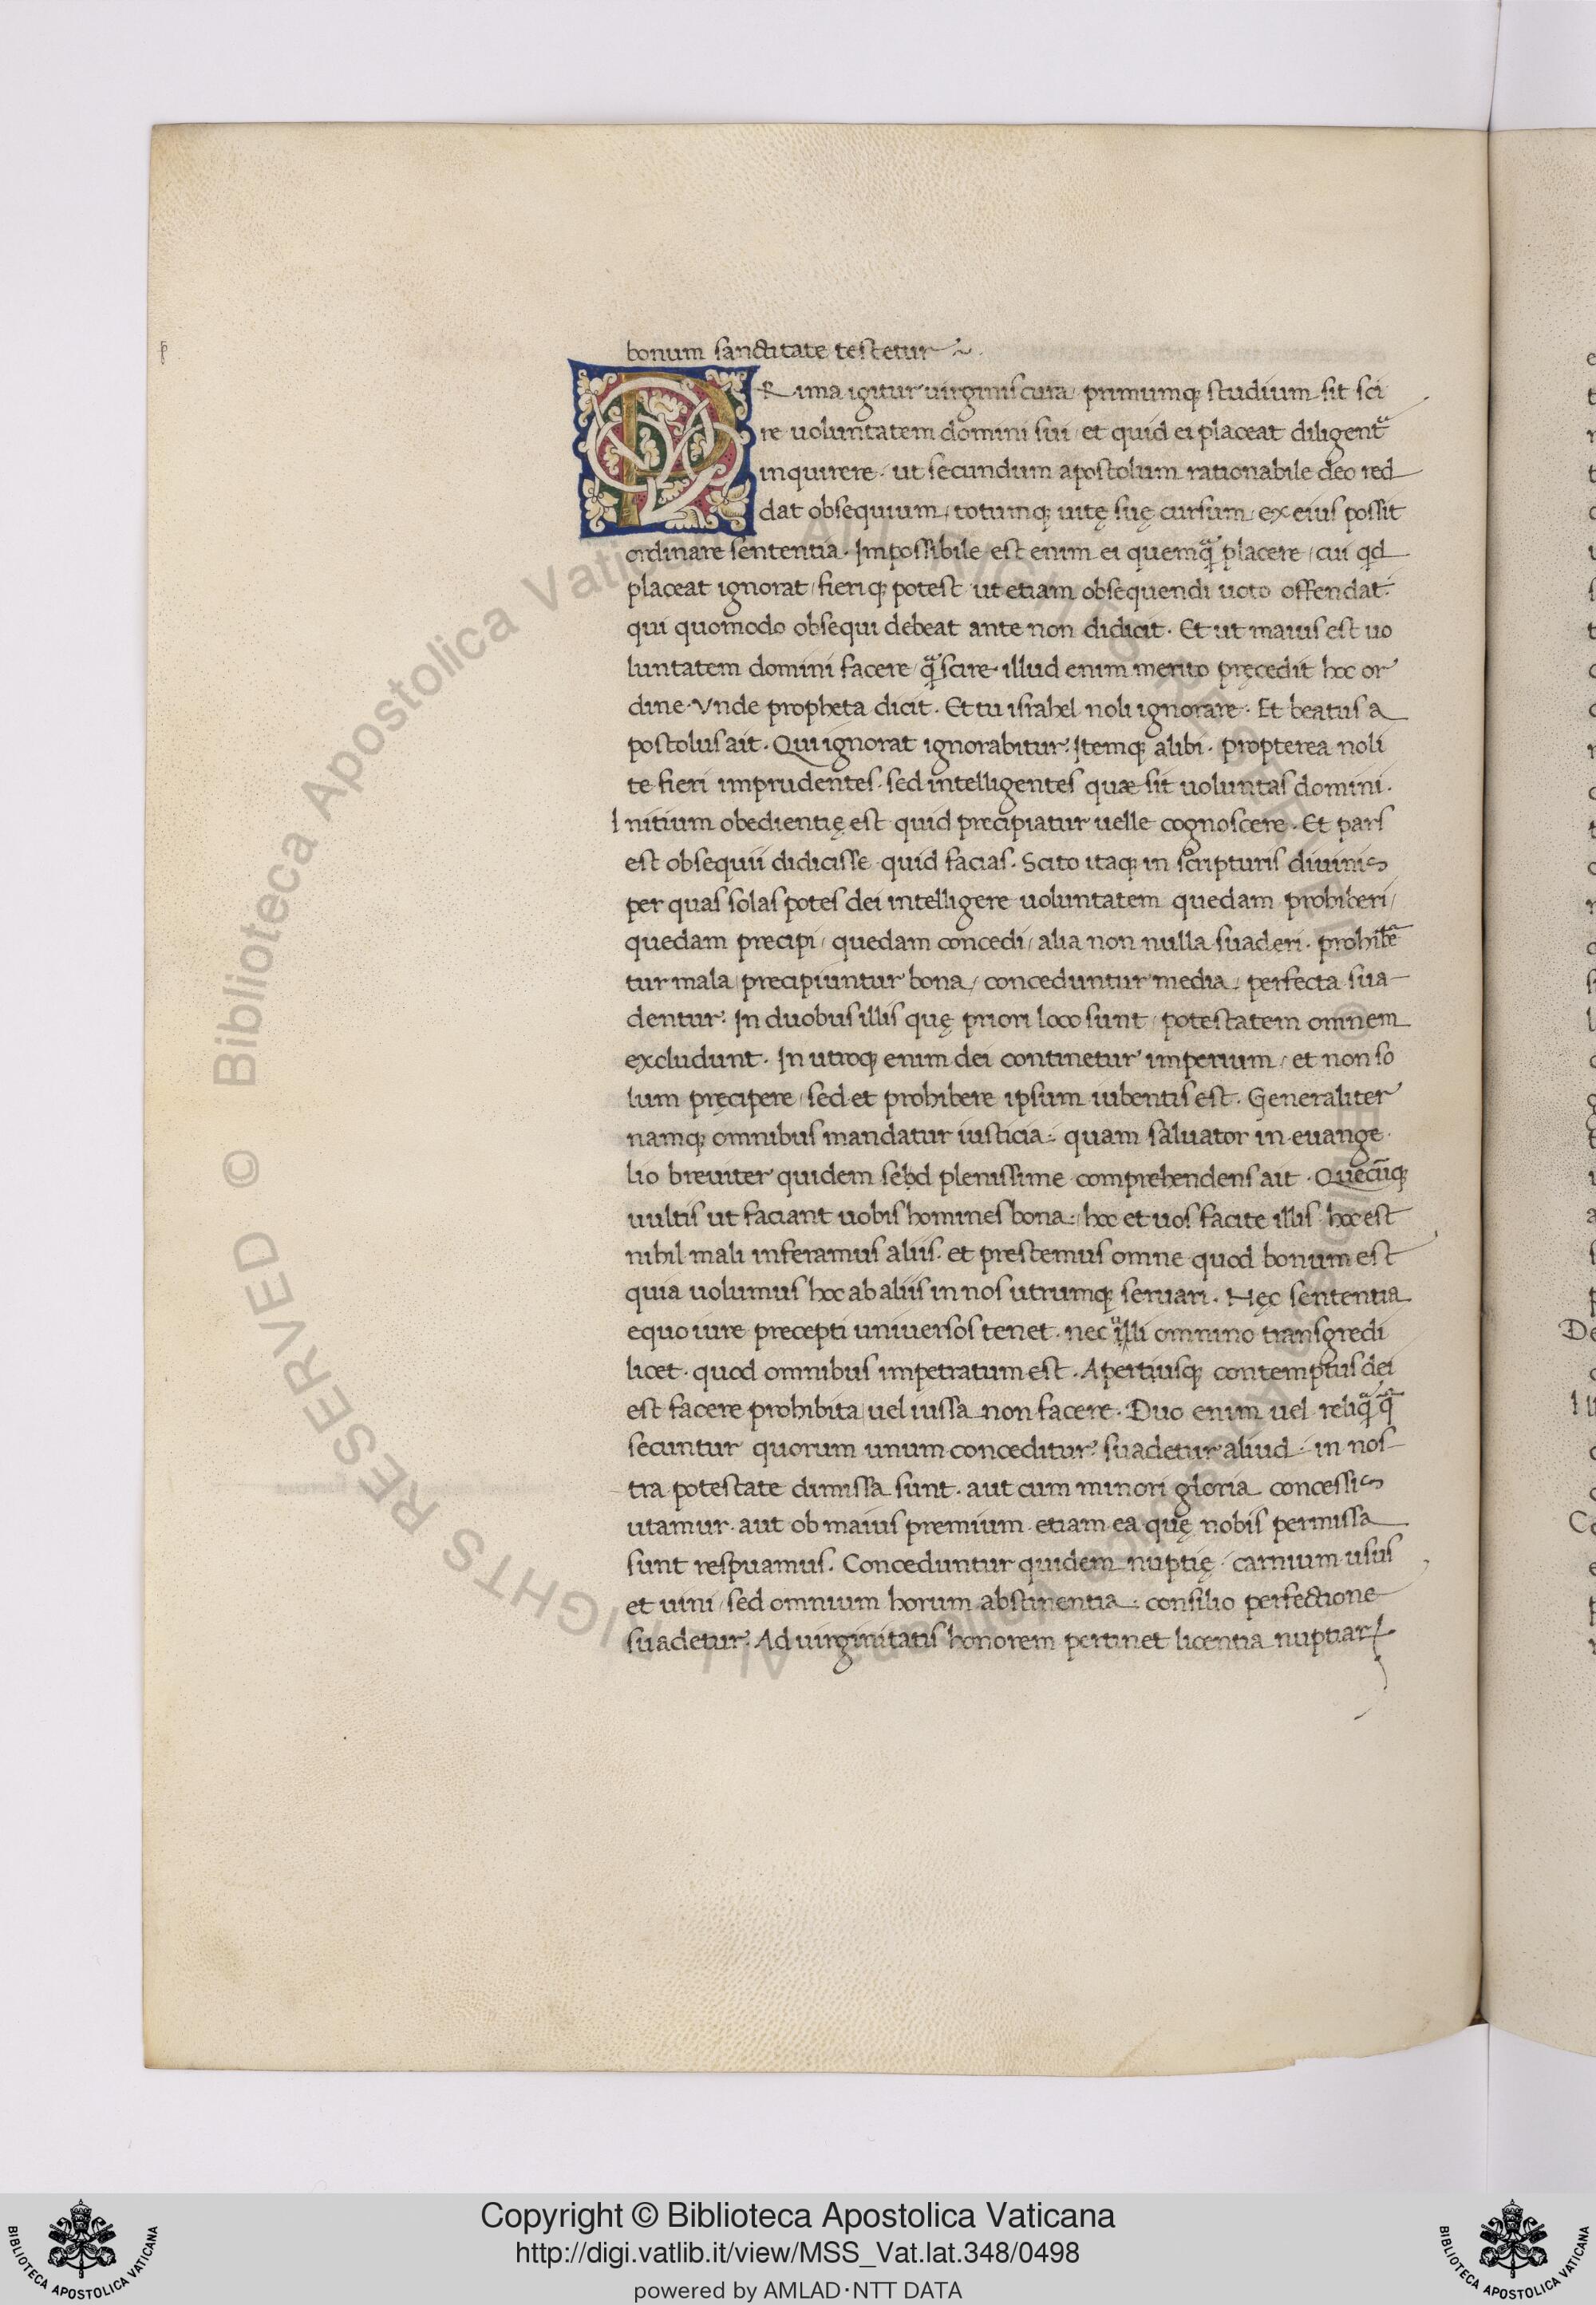 bonum sanctitate testetur
PRima igitur uirginis cura / primumq; studium sit sci
re uoluntatem domini sui / et quid ei placeat diligent̄
inquirere · ut secundum apostolum rationabile deo red
dat obsequium / totumq; uitę suę cursum / ex eius possit
ordinare sententia · Impossibile est enim ei quemq̄ placere / cui qd
placeat ignorat / fieriq; potest ut etiam obsequendi uoto offendat ·
qui quomodo obsequi debeat ante non didicit · Et ut maius est uo
luntatem domini facere q̄ scire · illud enim merito pręcedit hoc or
dine · Vnde propheta dicit · Et tu israhel noli ignorare · Et beatus a
postolus ait · Qui ignorat ignorabitur · Itemq; alibi · propterea noli
te fieri imprudentes · sed intelligentes quæ sit uoluntas domini ·
Initium obedientię est quid precipiatur uelle cognoscere · Et pars
est obsequii didicisse quid facias · Scito itaq; in scripturis diuinis
per quas solas potes dei intelligere uoluntatem quedam prohiberi /
quedam precipi / quedam concedi / alia non nulla suaderi · prohibē
tur mala / precipiuntur bona / conceduntur media / perfecta sua
dentur · In duobus illis quę priori loco sunt / potestatem omnem
excludunt · In utroq; enim dei continetur imperium / et non so
lum pręcipere / sed et prohibere ipsum iubentis est · Generaliter
namq; omnibus mandatur iusticia : quam saluator in euange
lio breuiter quidem sebd plenissime comprehendens ait · Quecūq;
uultis ut faciant uobis homines bona : hoc et uos facite illis hoc est
nihil mali inferamus aliis · et prestemus omne quod bonum est
quia uolumus hoc ab aliis in nos utrumq; seruari · Hęc sententia
equo iure precepti uniuersos tenet · nec illi omnino transgredi
licet · quod omnibus impetratum est · Apertiusq; contemptus dei
est facere prohibita / uel iussa non facere · Duo enim uel reliq̄ q̄
secuntur quorum unum conceditur · suadetur aliud · in nos
tra potestate dimissa sunt · aut cum minori gloria concessis
utamur · aut ob maius premium etiam ea quę nobis permissa
sunt respuamus · Conceduntur quidem nuptię · carnium usus
et uini / sed omnium horum abstinentia : consilio perfectione
suadetur · Ad uirginitatis honorem pertinet licentia nuptiaꝝ
© Biblioteca Apostolica Vaticana ALL RIGHTS RESERVED
Copyright © Biblioteca Apostolica Vaticana
http://digi.vatlib.it/view/MSS_Vat.lat.348/0498
powered by AMLAD·NTT DATA
BIBLIOTECA APOSTOLICA VATICANA
BIBLIOTECA APOSTOLICA VATICANA